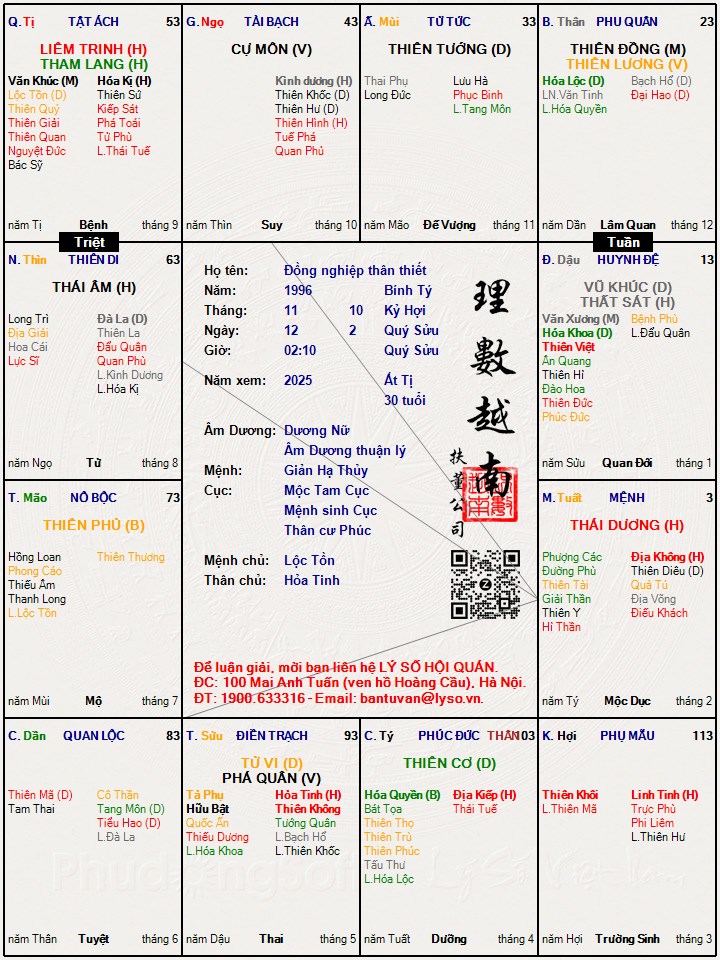 Q. Tị TẬT ÁCH 53
LIÊM TRINH (H)
THAM LANG (H)
Văn Khúc (M) Hóa Kị (H)
Lộc Tồn (D) Thiên Sứ
Thiên Quý Kiếp Sát
Thiên Giải Phá Toái
Thiên Quan Tử Phù
Nguyệt Đức L.Thái Tuế
Bác Sỹ
năm Tị Bệnh tháng 9
G. Ngọ TÀI BẠCH 43
CỰ MÔN (V)
Kình dương (H)
Thiên Khốc (D)
Thiên Hư (D)
Thiên Hình (H)
Tuế Phá
Quan Phủ
năm Thìn Suy tháng 10
Ấ. Mùi TỬ TỨC 33
THIÊN TƯỚNG (D)
Thai Phụ Lưu Hà
Long Đức Phục Binh
L.Tang Môn
năm Mão Đế Vượng tháng 11
B. Thân PHU QUÂN 23
THIÊN ĐỒNG (M)
THIÊN LƯƠNG (V)
Hóa Lộc (D) Bạch Hổ (D)
LN.Văn Tinh Đại Hao (D)
L.Hóa Quyền
năm Dần Lâm Quan tháng 12
Triệt
Tuần
N. Thìn THIÊN DI 63
THÁI ÂM (H)
Long Trì Đà La (D)
Địa Giải Thiên La
Hoa Cái Đẩu Quân
Lực Sĩ Quan Phù
L.Kình Dương
L.Hóa Kị
năm Ngọ Tử tháng 8
Họ tên: Đồng nghiệp thân thiết
Năm: 1996 Bính Tý
Tháng: 11 10 Kỷ Hợi
Ngày: 12 2 Quý Sửu
Giờ: 02:10 Quý Sửu
Năm xem: 2025 Ất Tị
30 tuổi
Âm Dương: Dương Nữ
Âm Dương thuận lý
Mệnh: Giản Hạ Thủy
Cục: Mộc Tam Cục
Mệnh sinh Cục
Thân cư Phúc
Mệnh chủ: Lộc Tồn
Thân chủ: Hỏa Tinh
理數越南
扶董公司
Để luận giải, mời bạn liên hệ LÝ SỐ HỘI QUÁN.
ĐC: 100 Mai Anh Tuấn (ven hồ Hoàng Cầu), Hà Nội.
ĐT: 1900.633316 - Email: bantuvan@lyso.vn.
Đ. Dậu HUYNH ĐỆ 13
VŨ KHÚC (D)
THẤT SÁT (H)
Văn Xương (M) Bệnh Phù
Hóa Khoa (D) L.Đẩu Quân
Thiên Việt
Ân Quang
Thiên Hỉ
Đào Hoa
Thiên Đức
Phúc Đức
năm Sửu Quan Đới tháng 1
T. Mão NÔ BỘC 73
THIÊN PHỦ (B)
Hồng Loan Thiên Thương
Phong Cáo
Thiếu Âm
Thanh Long
L.Lộc Tồn
năm Mùi Mộ tháng 7
M. Tuất MỆNH 3
THÁI DƯƠNG (H)
Phượng Các Địa Không (H)
Đường Phù Thiên Diêu (D)
Thiên Tài Quả Tú
Giải Thần Địa Võng
Thiên Y Điếu Khách
Hỉ Thần
năm Tý Mộc Dục tháng 2
C. Dần QUAN LỘC 83
Thiên Mã (D) Cô Thần
Tam Thai Tang Môn (D)
Tiểu Hao (D)
L.Đà La
năm Thân Tuyệt tháng 6
T. Sửu ĐIỀN TRẠCH 93
TỬ VI (D)
PHÁ QUÂN (V)
Tả Phụ Hỏa Tinh (H)
Hữu Bật Thiên Không
Quốc Ấn Tướng Quân
Thiếu Dương L.Bạch Hổ
L.Hóa Khoa L.Thiên Khốc
năm Dậu Thai tháng 5
C. Tý PHÚC ĐỨC THÂN 103
THIÊN CƠ (D)
Hóa Quyền (B) Địa Kiếp (H)
Bát Tọa Thái Tuế
Thiên Thọ
Thiên Trù
Thiên Phúc
Tấu Thư
L.Hóa Lộc
năm Tuất Dưỡng tháng 4
K. Hợi PHỤ MẪU 113
Thiên Khôi Linh Tinh (H)
L.Thiên Mã Trực Phù
Phi Liêm
L.Thiên Hư
năm Hợi Trường Sinh tháng 3